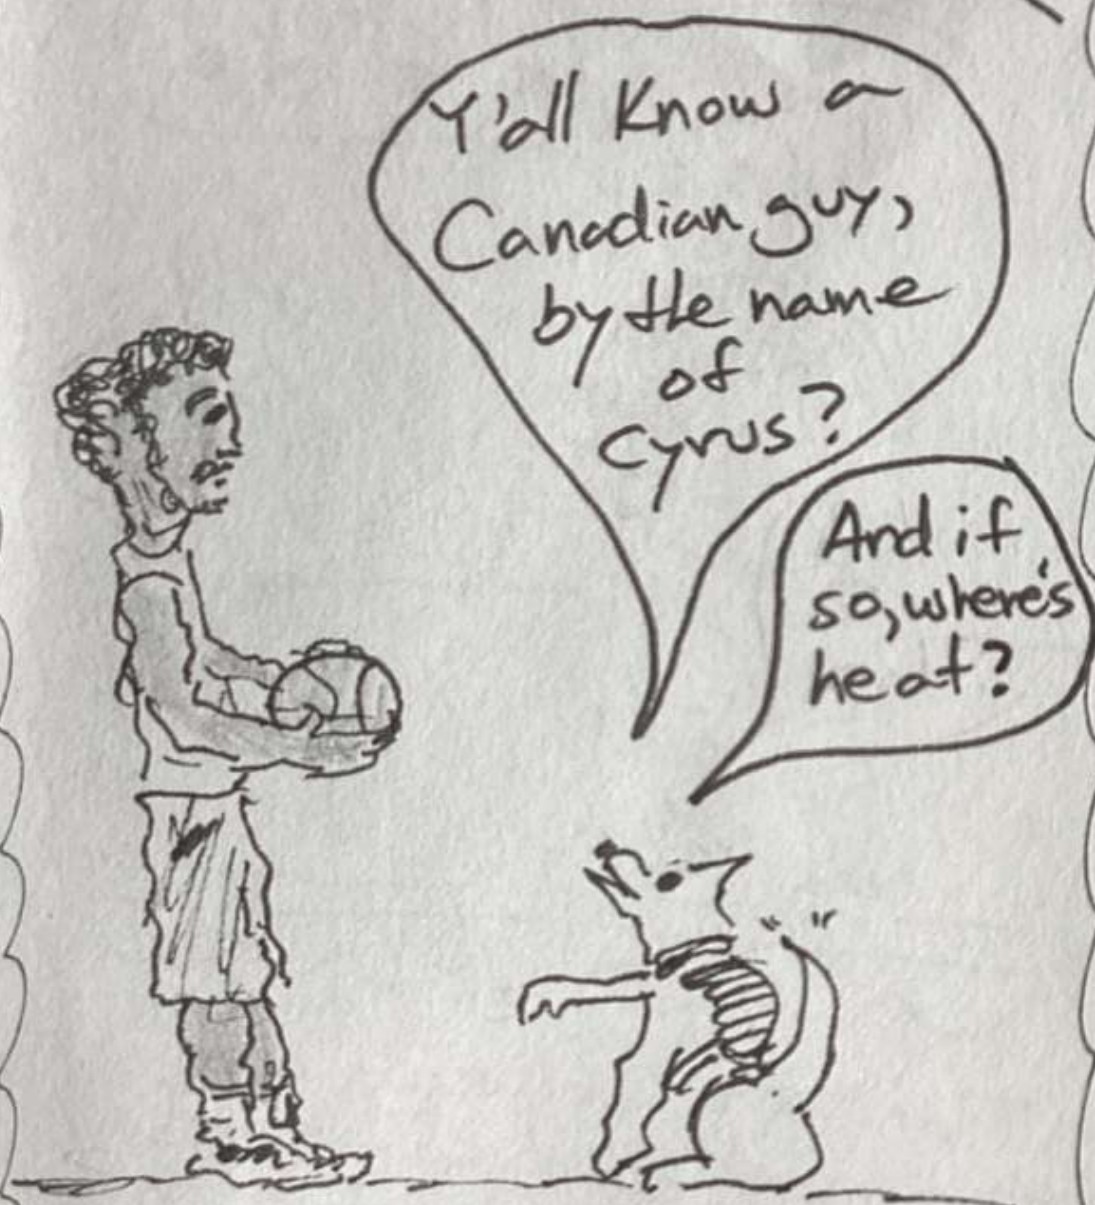 Y'all Know a
Canadian guy,
by the name
of
Cyrus?
And if
so, where's
he at?